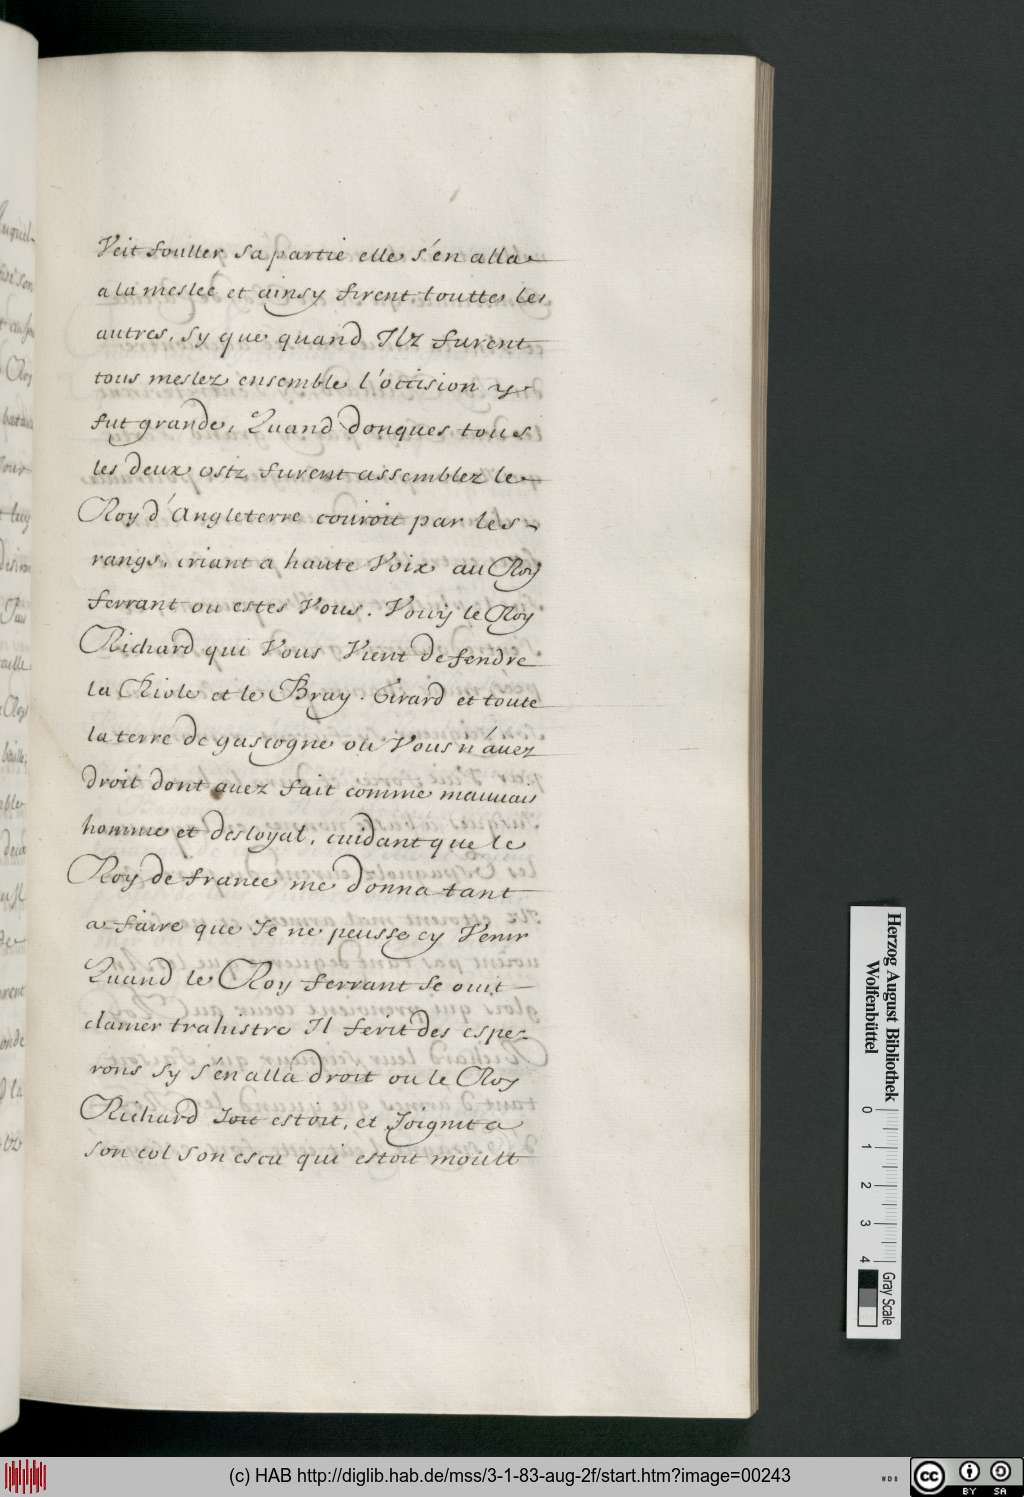 Veit fouller sa partie elle s'en alla
a la meslée et ainsy firent touttes les
autres, sy que quand Ilz furent
tous meslez ensemble l'occision y
fut grande, Quand donques tous
les deux ostz furent assemblez le
Roy d'Angleterre couroit par les
rangs, criant a haute Voix au Roy
ferrant ou estes Vous. Voicy le Roy
Richard qui Vous Vient defendre
la Riole et le Bray. Girard et toute
la terre de gascogne ou Vous n'auez
droit dont auez fait comme mauuais
homme et desloyal, cuidant que le
Roy de france me donna tant
a faire que Je ne peusse cy Venir
Quand le Roy ferrant se ouit
clamer trahistre Il ferit des espe-
rons sy s'en alla droit ou le Roy
Richard estoit, et Joignit a
son col son escu qui estoit moult
Herzog August Bibliothek
Wolfenbüttel
0 1 2 3 4
Gray Scale
(c) HAB http://diglib.hab.de/mss/3-1-83-aug-2f/start.htm?image=00243
cc BY SA